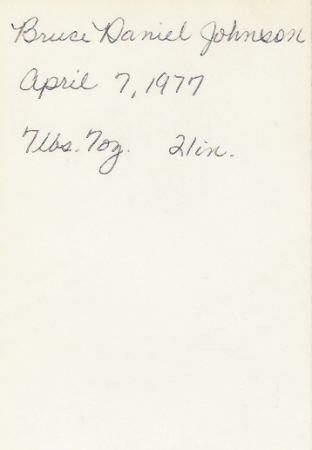 Bruce Daniel Johnson
April 7, 1977
7lbs. 7oz. 21in.